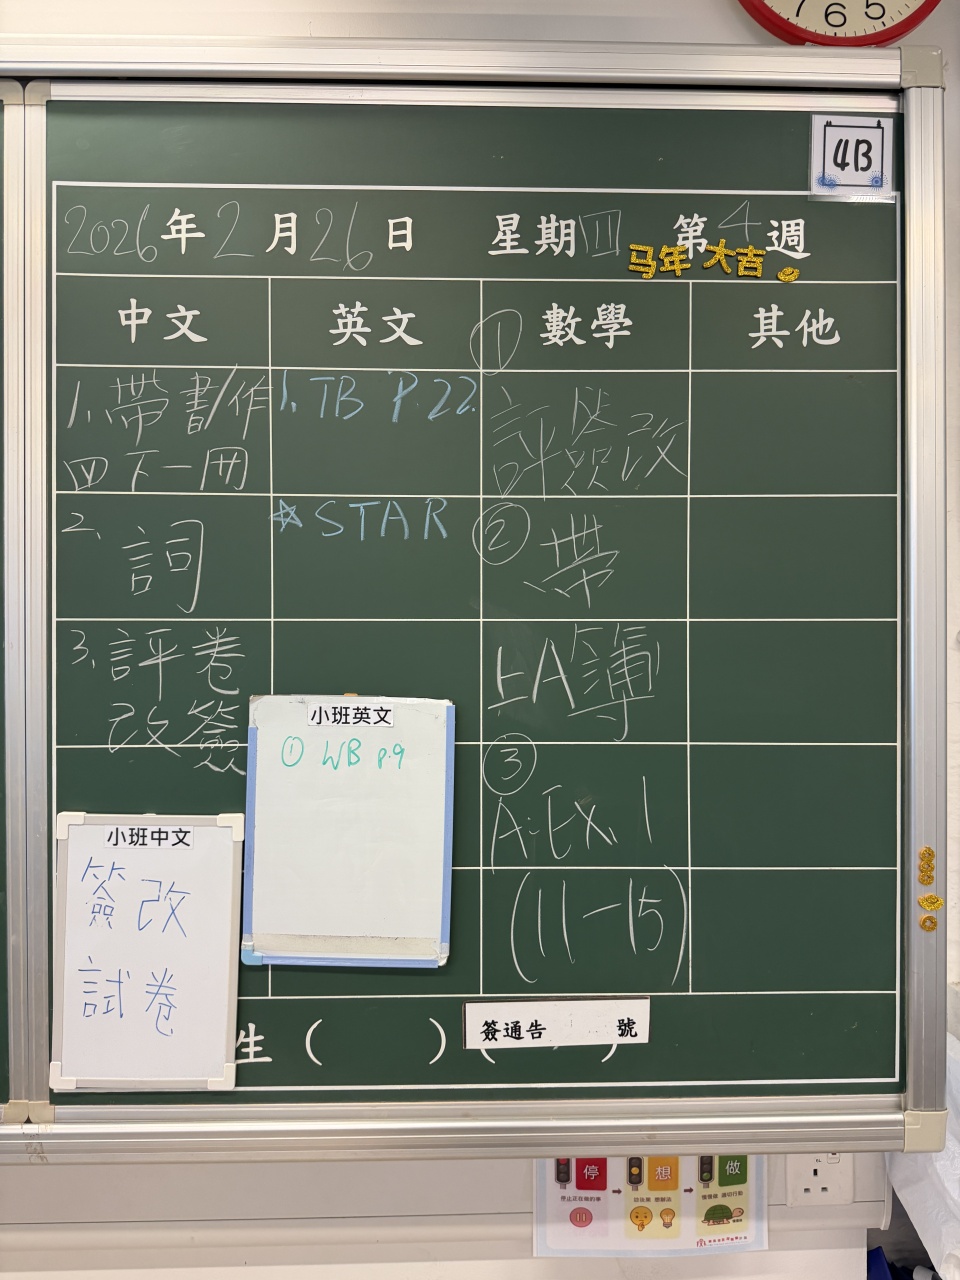 7 6 5
4B
2026年2月26日 星期四 第4週
马年大吉
中文 英文 ①數學 其他
1.帶書/作
四下一冊
2.詞
3.評卷
改簽
1.TB P.22.
☆STAR
評簽改
②帶
A簿
③
A:Ex.1
(11-15)
小班英文
① WB p.9
小班中文
簽改
試卷
生( )( )
簽通告 號
停 想 做